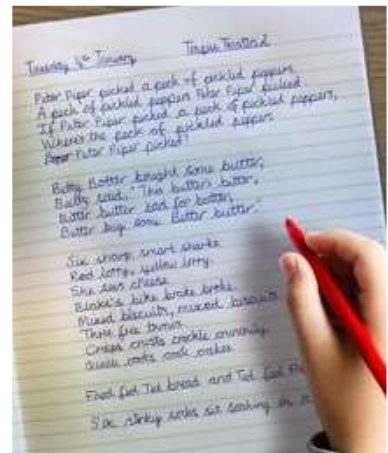 Tuesday 4th January Tongue Twisters 2
Peter Piper picked a peck of pickled peppers
A peck of pickled peppers Peter Piper picked
If Peter Piper picked a peck of pickled peppers,
Where's the peck of pickled peppers
Peter Piper picked?
Betty Botter bought some butter,
Betty said, "This butter's bitter,
Bitter butter bad for batter,
Better buy some better butter."
Six sharp, smart sharks
Red lorry, yellow lorry.
She sees cheese
Blake's bike broke
Mixed biscuits, mixed biscuits
Three free
Crisps crusts crackle crunchily.
cook cakes
Fred fed Ted bread and Ted fed
Six stinky socks sit